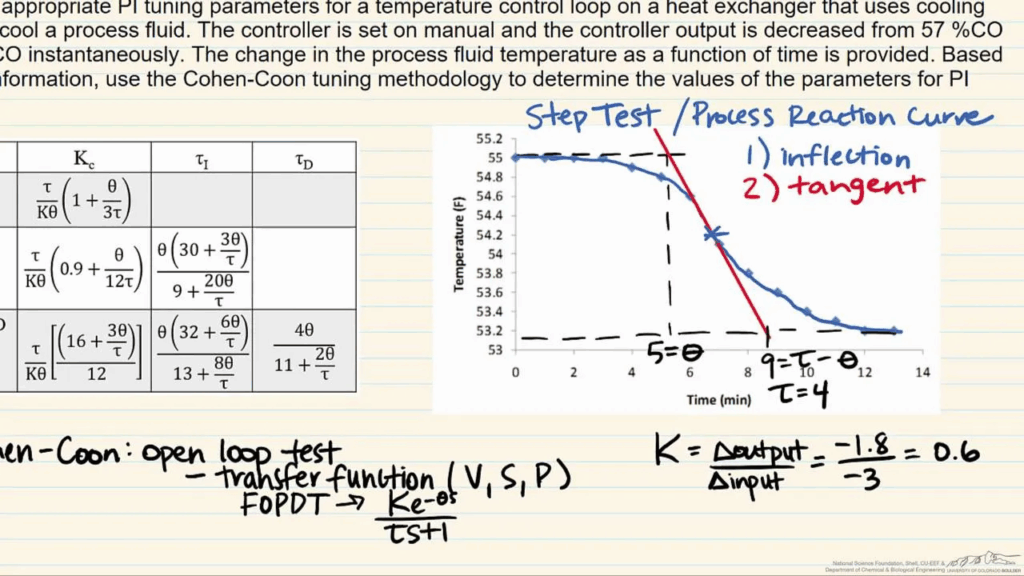 appropriate PI tuning parameters for a temperature control loop on a heat exchanger that uses cooling
cool a process fluid. The controller is set on manual and the controller output is decreased from 57 %CO
CO instantaneously. The change in the process fluid temperature as a function of time is provided. Based
formation, use the Cohen-Coon tuning methodology to determine the values of the parameters for PI
Step Test / Process Reaction Curve
1) inflection
2) tangent
Kc τI τD
τ/Kθ (1 + θ/3τ)
τ/Kθ (0.9 + θ/12τ) θ(30 + 3θ/τ) / 9 + 20θ/τ
τ/Kθ [(16 + 3θ/τ) / 12] θ(32 + 6θ/τ) / 13 + 8θ/τ 4θ / 11 + 2θ/τ
Temperature (F)
55.2
55
54.8
54.6
54.4
54.2
54
53.8
53.6
53.4
53.2
53
0 2 4 6 8 10 12 14
Time (min)
5=θ
9=τ-θ
τ=4
en-Coon: open loop test
- transfer function (V, S, P)
FOPDT → Ke-θs / τs+1
K = Δoutput / Δinput = -1.8 / -3 = 0.6
National Science Foundation, Shell, CU-EEF &
Department of Chemical & Biological Engineering UNIVERSITY OF COLORADO BOULDER